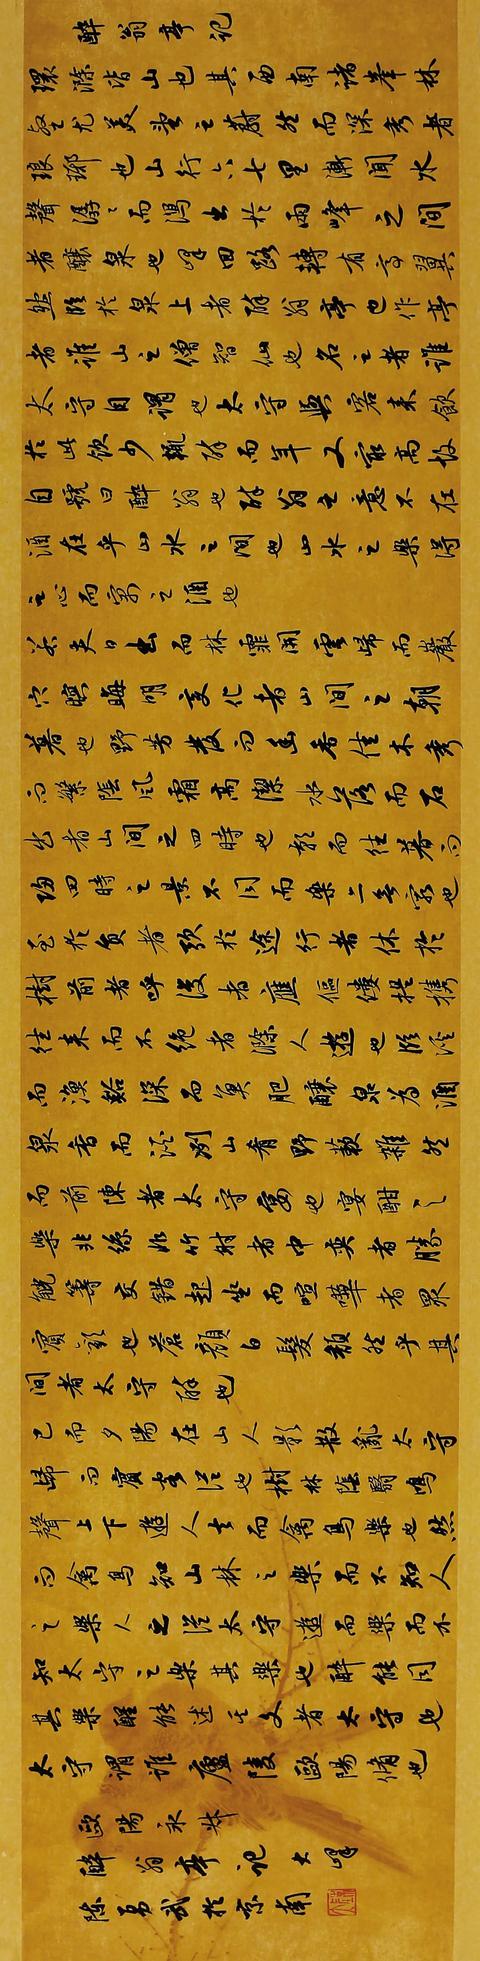 醉翁亭記
環滁皆山也其西南諸峯林
壑尤美望之蔚然而深秀者
琅琊也山行六七里漸聞水
聲潺〻而瀉出於兩峰之間
者釀泉也峰回路轉有亭翼
然臨於泉上者醉翁亭也作亭
者誰山之僧智仙也名之者誰
太守自謂也太守與客來飲
於此飲少輒醉而年又最高故
自號曰醉翁也醉翁之意不在
酒在乎山水之間也山水之樂得
之心而寓之酒也
若夫日出而林霏開雲歸而巖
穴暝晦明變化者山間之朝
暮也野芳發而幽香佳木秀
而繁陰風霜高潔水落而石
出者山間之四時也朝而往暮而
歸四時之景不同而樂亦無窮也
至於負者歌於途行者休於
樹前者呼後者應傴僂提攜
往來而不絕者滁人遊也臨溪
而漁谿深而魚肥釀泉為酒
泉香而酒洌山肴野蔌雜然
而前陳者太守宴也宴酣之
樂非絲非竹射者中奕者勝
觥籌交錯起坐而喧嘩者眾
賓歡也蒼顏白髮頹然乎其
間者太守醉也
已而夕陽在山人影散亂太守
歸而賓客從也樹林陰翳鳴
聲上下遊人去而禽鳥樂也然
而禽鳥知山林之樂而不知人
之樂人之從太守遊而樂而不
知太守之樂其樂也醉能同
其樂醒能述其文者太守也
太守謂誰廬陵歐陽脩也
歐陽永叔
醉翁亭記大峰
陳勇武於京南